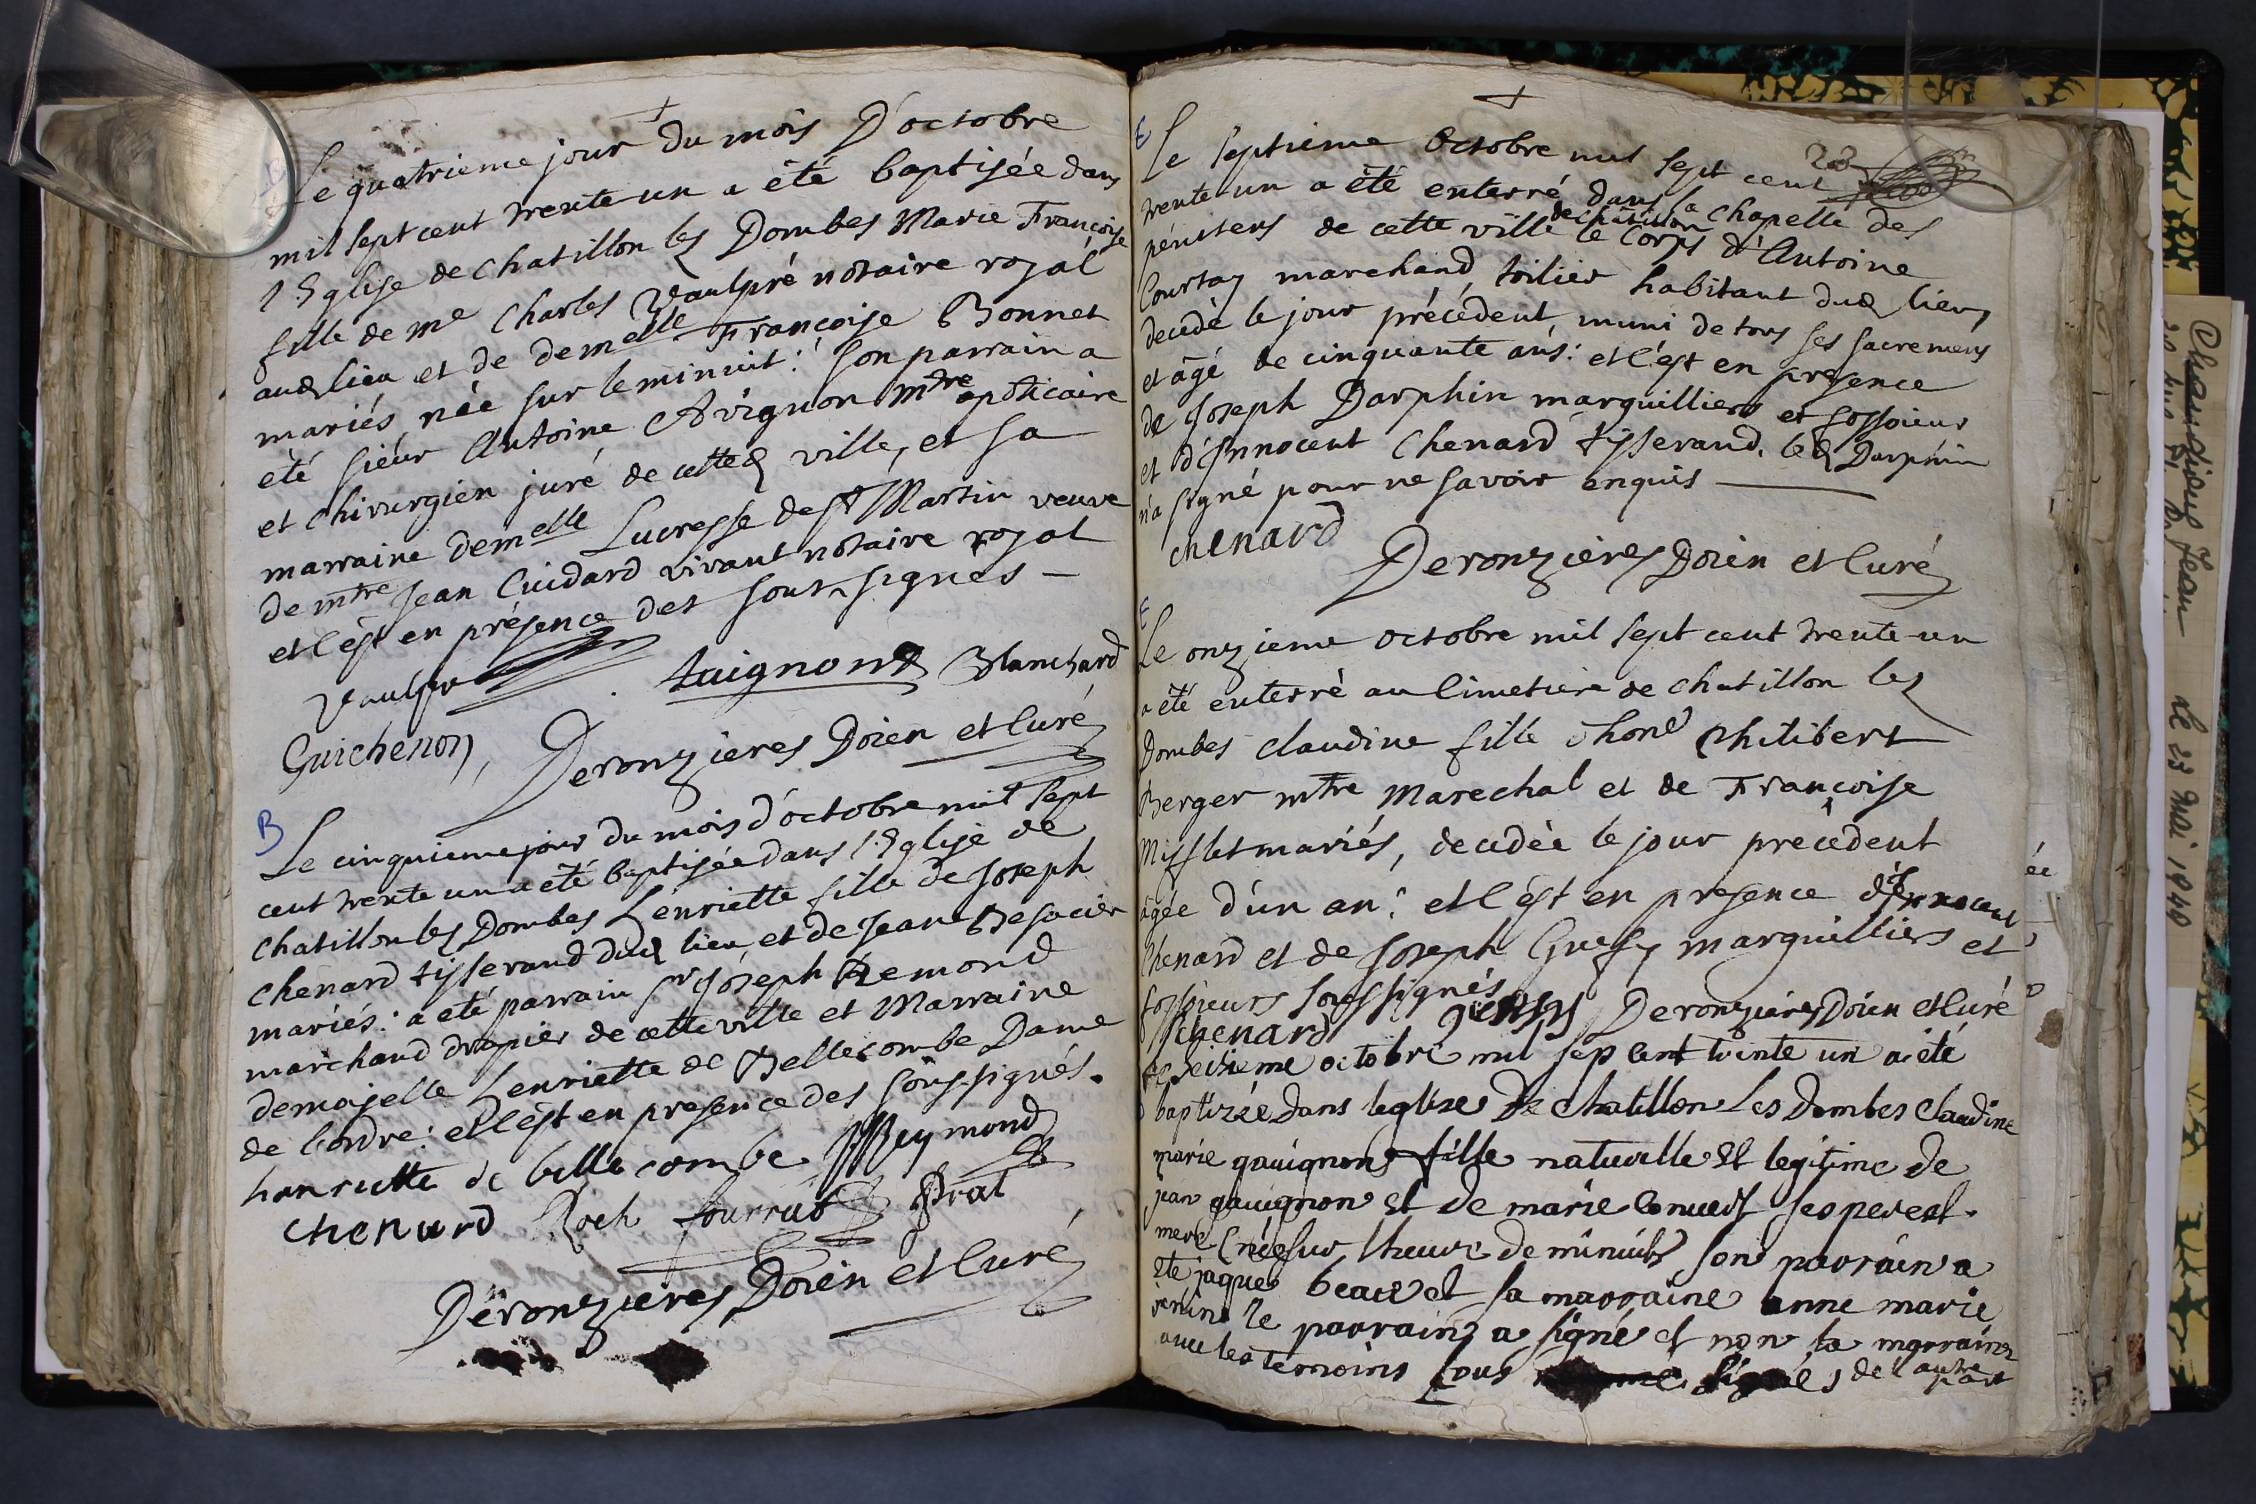 Le quatrieme jour du mois D'octobre
mil sept cent trente un a été baptisée dans
l'Eglise de chatillon les Dombes Marie Françoise
fille de me Charles Vaulpré notaire royal
audt lieu et de demelle Françoise Bonnet
mariés née sur le minuit: son parrain a
été sieur Antoine Avignon mtre apoticaire
et chirurgien juré de cetted ville, et sa
marraine demelle Lucresse de st Martin veuve
de mtre Jean Cuidard vivant notaire royal
et c'est en présence des sous-signés -
Vaulpré Auignon Blanchard
Guichenon, Deronzieres Doien et Curé
B
Le cinquieme jour du mois d'octobre mil sept
cent trente un a été baptisée dans l'Eglise de
chatillon les Dombes henriette fille de Joseph
chenard tisserand dud lieu et de Jeane Besacier
mariés: a été parrain sr Joseph Remond
marchand drapier de cette ville et Marraine
demaiselle henriette de Bellecombe Dame
de Cordre: et c'est en presence des sous-signés.
hanriette de belle combe JReymond
chenard Roch fourrat Prat
Deronzieres Doien et Curé
23
E
Le septieme Octobre mil sept cent
trente un a été enterré dans la chapelle des
de chatillon
pénitens de cette ville le Corps d'Antoine
Courtay marchand toilier habitant dud lieu,
decedé le jour précédent, muni de tous ses sacremens
et âgé de cinquante ans: et c'est en presence
de Joseph Darphin marguillier et fossoieur
et d'Innocent Chenard tisserand. led Darphin
n'a signé pour ne savoir enquis
chenard
Deronzieres Doien et Curé
E
Le onzieme octobre mil sept cent trente-un
a été enterré au Cimetiere de chatillon les
Dombes claudine fille d'hone Philibert
Berger mtre Marechal et de Françoise
Mifflet mariés, decedée le jour precedent
âgée d'un an: et c'est en presence d'Innocent
Chenard et de Joseph marguilliers et
fossoieurs soussignés
chenard Deronzieres Doien et Curé
Le seizieme octobre mil sept cent trente un a été
baptizée dans leglize De chatillon Les Dombes claudine
marie gauignon fille naturelle et legitime de
jean gauignon et de marie ses pere et
mere née sur lheure de minuit son parrain a
ete jaques et sa marraine anne marie
le parrain a signé et non la marraine
auec les temoins sous signés de l'autre
part
Chaudieus Jean
Le 23 mai 1940